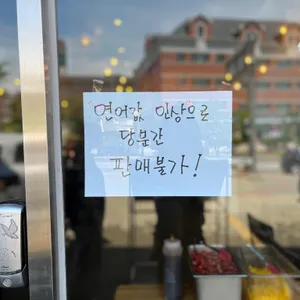 연어값 인상으로
당분간
판매불가!